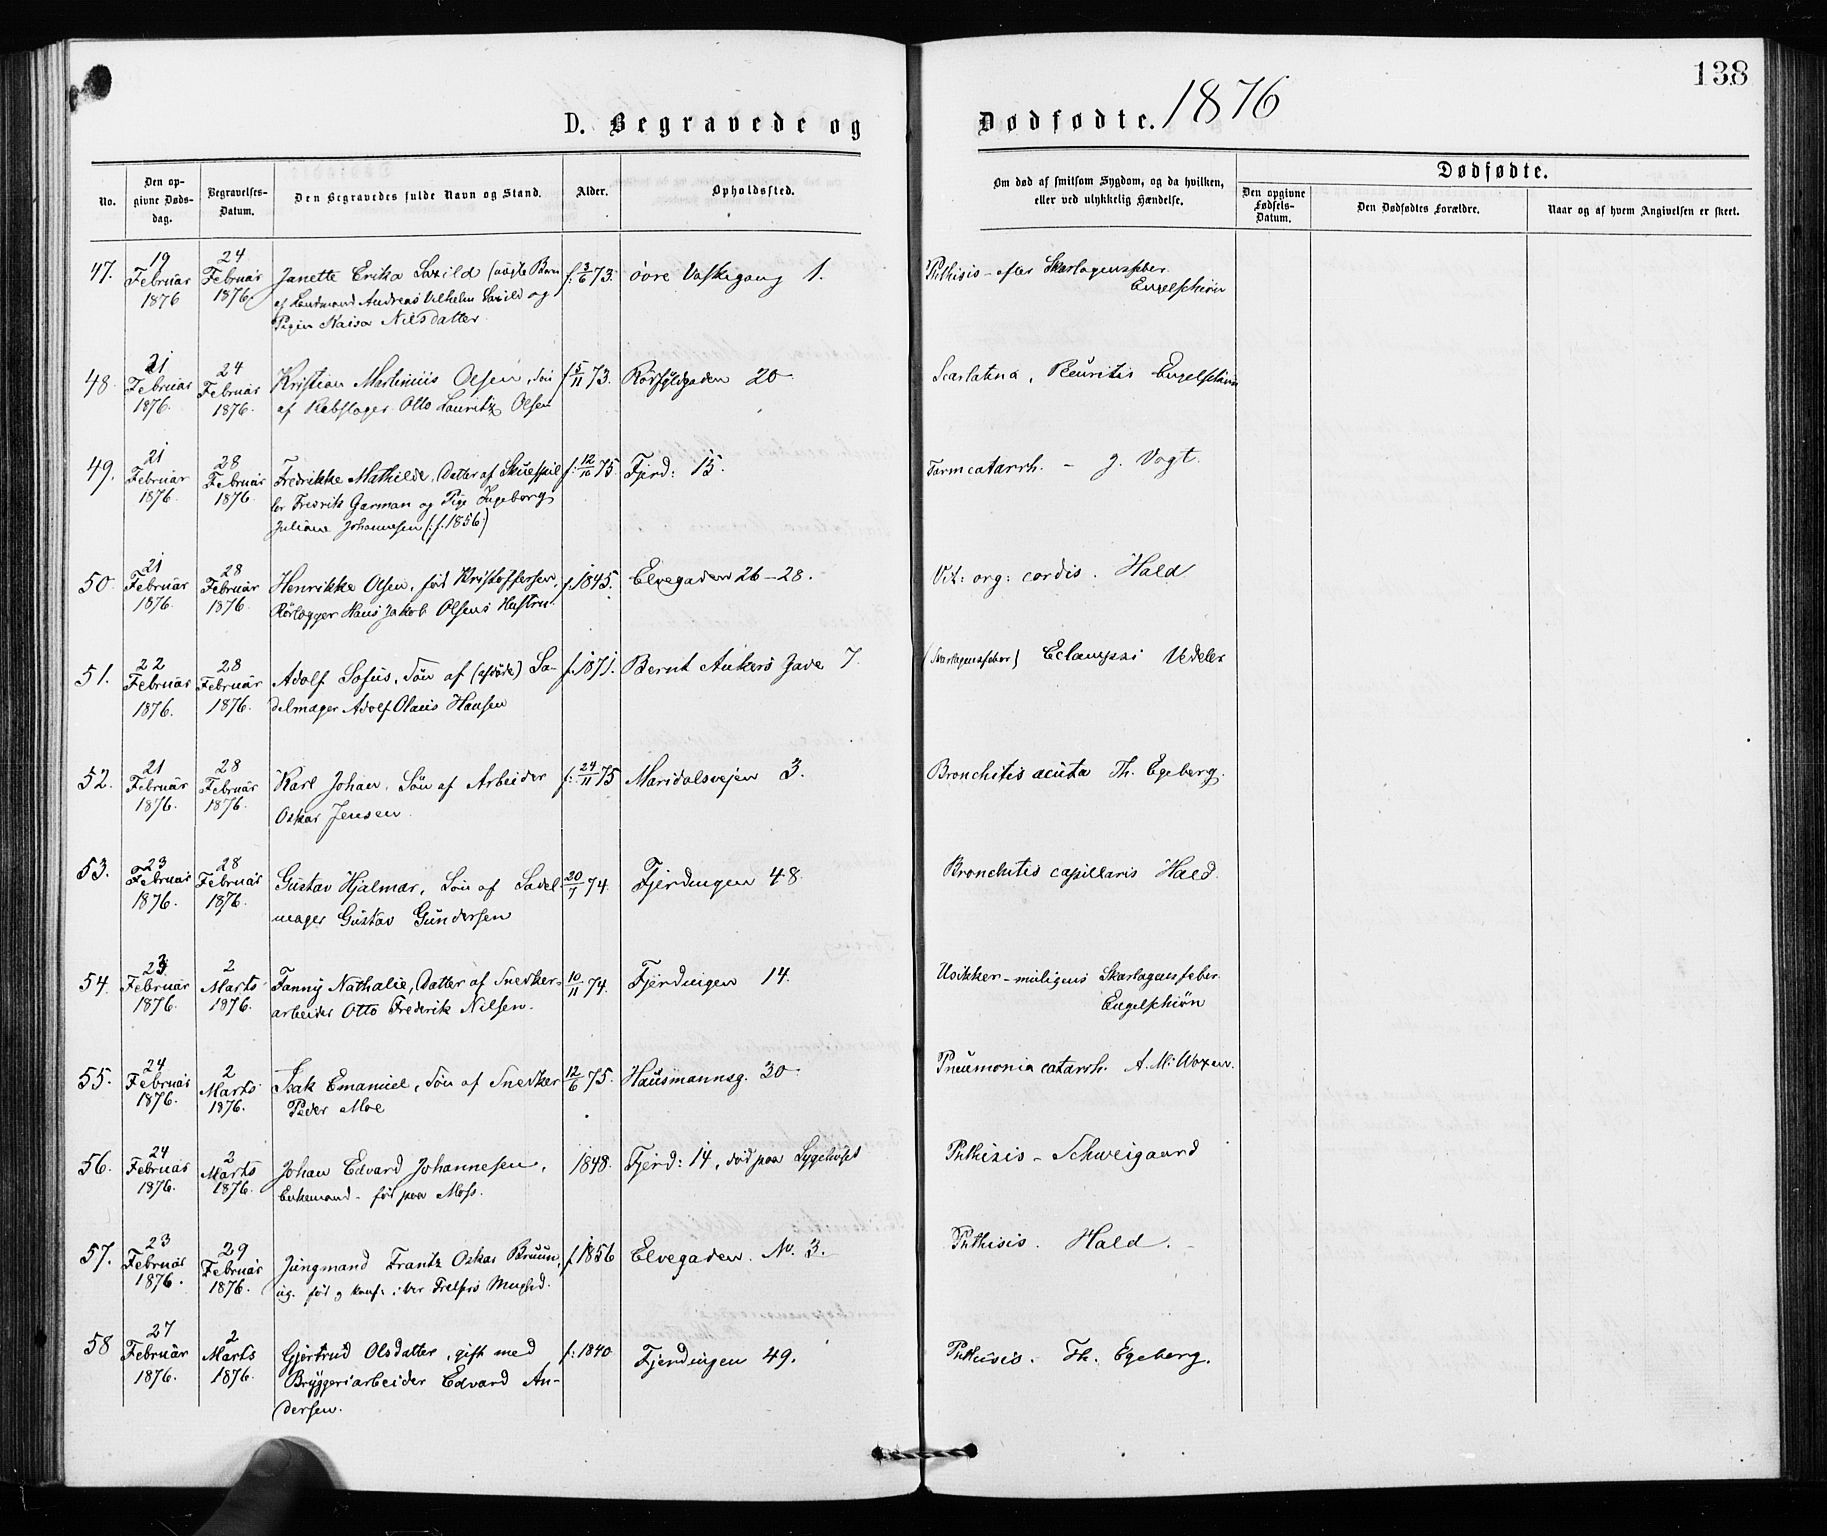 138
D. Begravede og Dødfødte. 1876
No.
Den opgivne Dødsdag.
Begravelses-Datum.
Den Begravedes fulde Navn og Stand.
Alder.
Opholdssted.
Om død af smitsom Sygdom, og da hvilken,
eller ved ulykkelig Hændelse.
Dødfødte.
Den opgivne Fødsels-Datum.
Den Dødfødtes Forældre.
Naar og af hvem Angivelsen er skeet.
47. 19 Februar 1876 24 Februar 1876. Janette Erika Saxild (uægte Barn f: 3/6 73. øvre Vaskegang 1. Phthisis - efter Skarlagensfeber.
af Landmand Andreas Vilhelm Saxild og Engelschiøn
Pigen Kaisa Nilsdatter.
48. 21 Februar 1876. 24 Februar 1876. Kristian Martinius Olsen, Søn f 5/11 73. 20 Scarlatina, Engelschiøn
af Rebslager Otto Lauritz Olsen
49. 21 Februar 1876. 28 Februar 1876. Fredrikke Mathilde, Datter af Skuespil- f: 12/10 75 Fjerd: 15. Tarmcatarrh. - J. Vogt.
ler Fredrik Garman og Pige Ingeborg
Juliane Johannesen (:f. 1856:)
50. 21 Februar 1876. 28 Februar 1876. Henrikke Olsen, født Kristoffersen, f. 1845. Elvegaden 26-28. Vit: org: cordis. Hald
Rørlægger Hans Jakob Olsens Hustru.
51. 22 Februar 1876. 28 Februar 1876. Adolf Sofus, Søn af (afdøde) Sa- f. 1871. Bernt Ankers Gade 7. (Skarlagensfeber) Eclampsi Vedeler
delmager Adolf Olaus Hansen
52. 21 Februar 1876. 28 Februar 1876. Karl Johan, Søn af Arbeider f: 24/11 75 Maridalsvejen 3. Bronchitis acuta Th. Egeberg.
Oskar Jensen
53. 23 Februar 1876. 28 Februar 1876. Gustav Hjalmar, Søn af Sadel- 20/7 74. Fjerdingen 48 Bronchitis capillaris Hald.
mager Gustav Gundersen
54. 23 Februar 1876. 2 Marts 1876. Fanny Nathalie, Datter af Snedker- 10/11 74. Fjerdingen 14. Usikker - muligens Skarlagensfeber.
arbeider Otto Frederik Nilsen. Engelschiøn
55. 24 Februar 1876. 2 Marts 1876. Isak Emanuel, Søn af Snedker 12/6 75. Hausmannsg. 30 Pneumonia catarrh. A. M. Woxen.
Peder Moe
56. 24 Februar 1876. 2 Marts 1876. Johan Edvard Johannesen, 1848. Fjerd: 14, død paa Sygehuset Phthisis - Schweigaard
Enkemand - født paa Moss.
57. 23 Februar 1876. 29 Februar 1876. Jungmand Frantz Oskar Bruun, f. 1856 Elvegaden. No. 3. Phthisis. Hald.
ug. født og konf: i Vor Frelsers Meghed.
58 27 Februar 1876. 2 Marts 1876. Gjertrud Olsdatter, gift med f: 1840 Fjerdingen 49. Phthisis. Th. Egeberg.
Bryggeriarbeider Edvard An-
dersen.